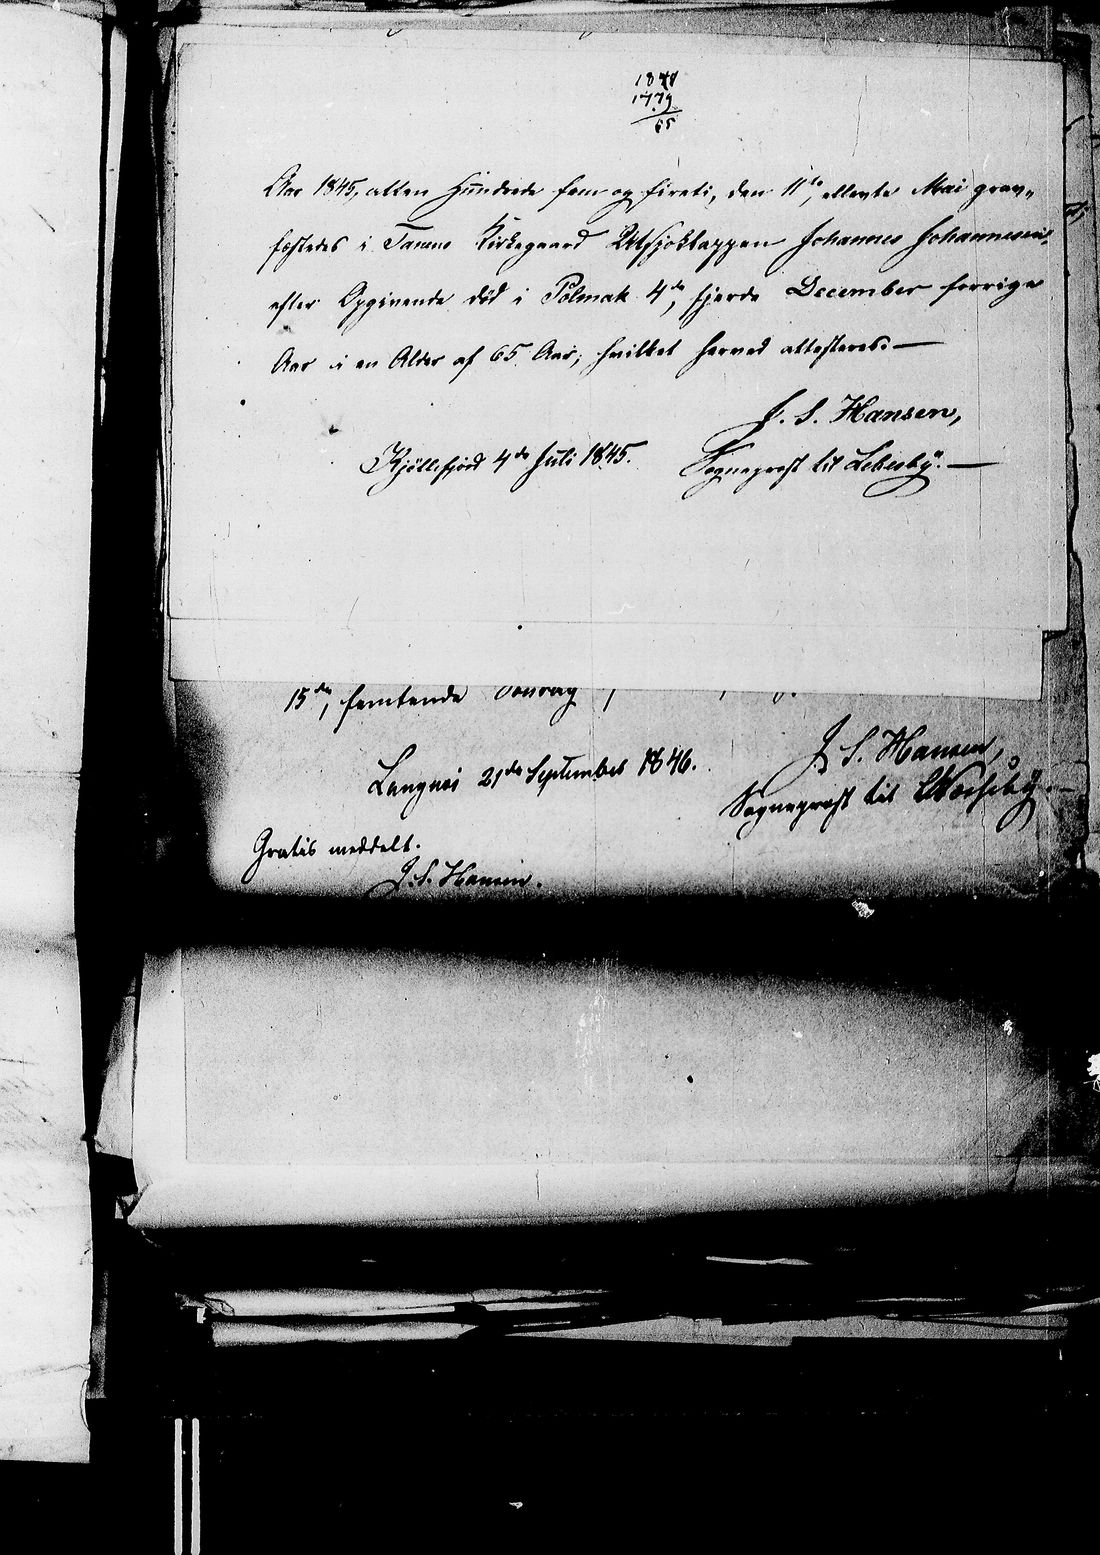 1844
1779
65
Aar 1845, atten Hundrede fem og fireti, den 11te, ellevte Mai grav-
fæstedes i Tanens Kirkegaard Utsjoklappen Johannes Johannessen,
efter Opgivende död i Polmak 4de, fjerde December forrige
Aar i en Alder af 65 Aar; hvilket herved attesteres.—
J. S. Hansen,
Kjöllefjord 4de Juli 1845. Sogneprest til Lebesby.—
15de, femtende
J. S. Hansen,
Langnæs 21de September 1846.
Sogneprest til
Gratis meddelt.
J. S. Hansen.